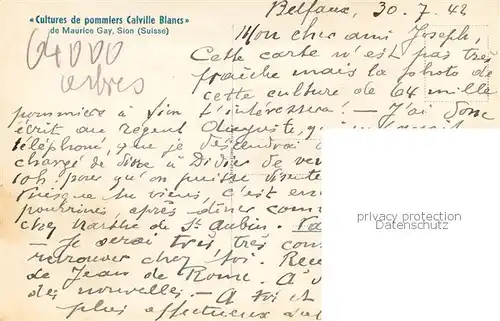 Belfaux, 30.7.42
«Cultures de pommiers Calville Blancs»
de Maurice Gay, Sion (Suisse)
64000
arbres
Mon cher ami Joseph,
Cette carte n'est pas très
fraîche mais la photo de
cette culture de 64 mille
pommiers à Sion t'intéressera! — J'ai donc
écrit au régent Auguste,
téléphoné, que je descendrai
chargé de dire à Didier de
10h. pour qu'on puisse
Puisque tu viens, c'est
pourrions, après dîner
chez Marthe de St Aubin.
— Je serai très, très
retrouver chez toi.
de Jean de Rome. A
des nouvelles. — A toi et
plus affectueux
privacy protection
privacy protection